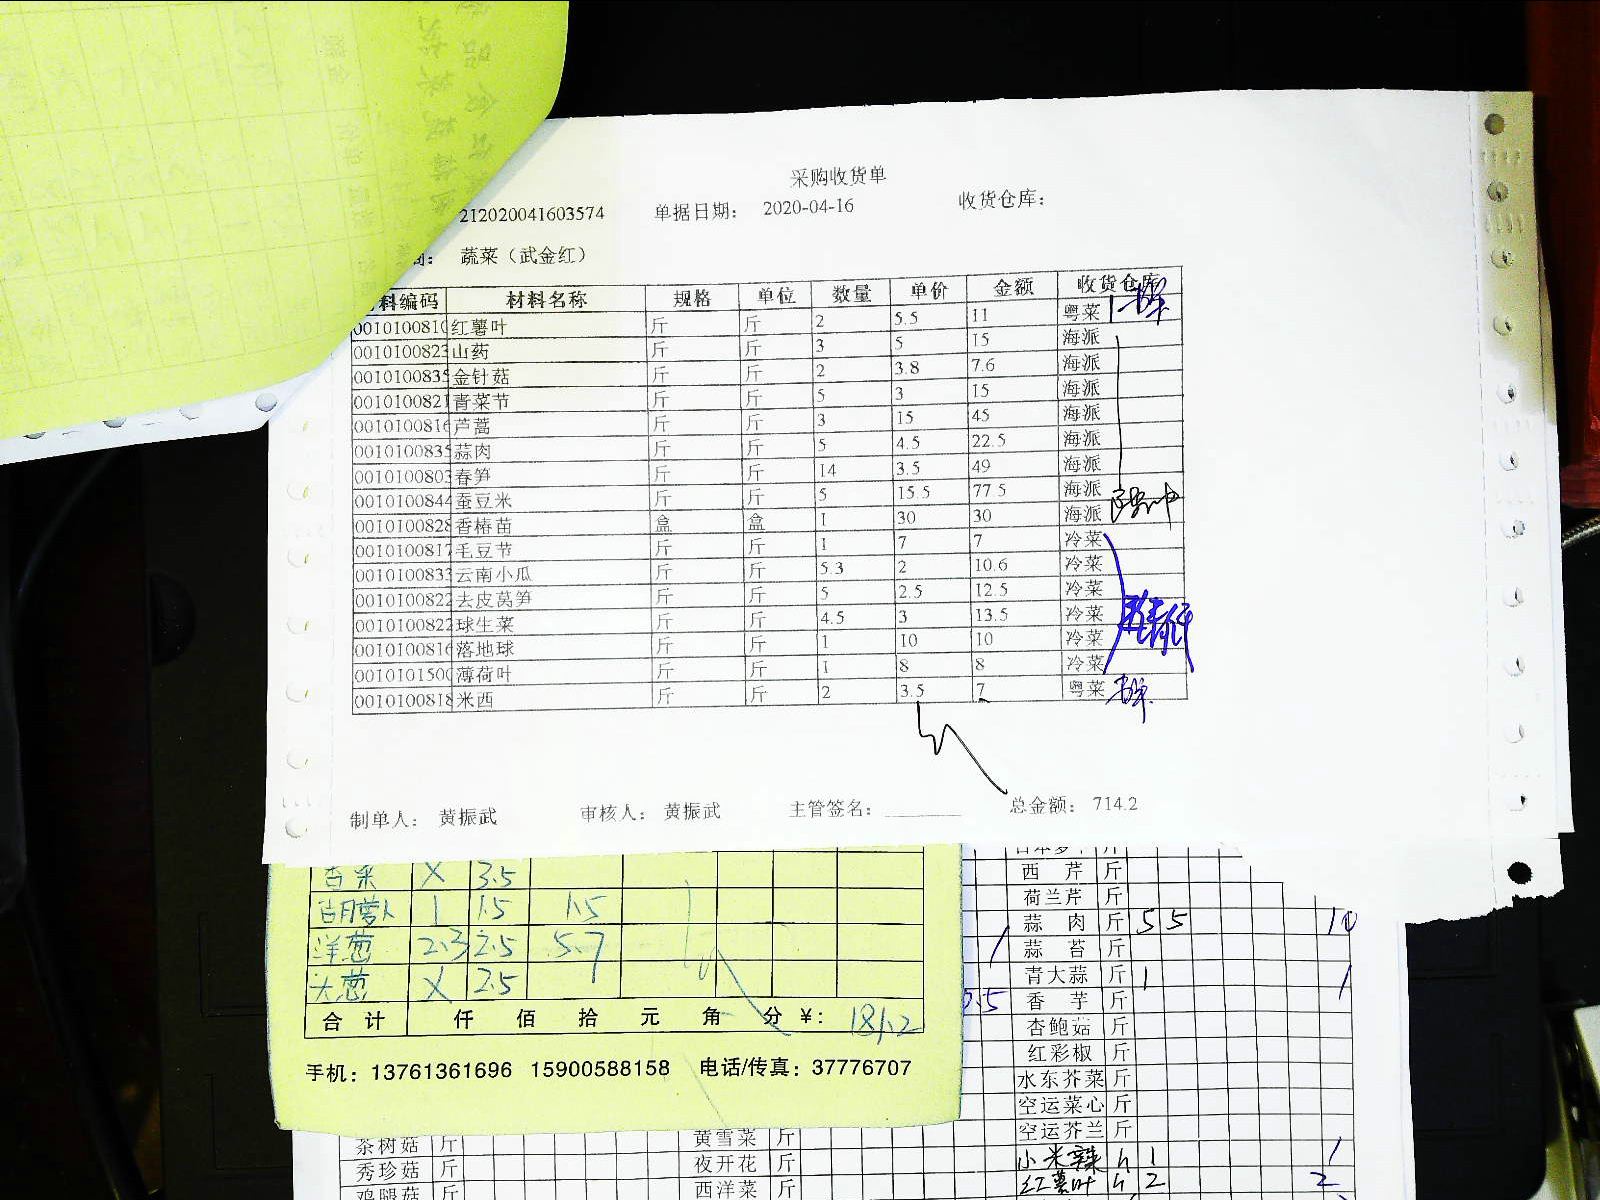 采购收货单
212020041603574 单据日期: 2020-04-16 收货仓库:
商: 蔬菜（武金红）
料编码 材料名称 规格 单位 数量 单价 金额 收货仓库
0010100810 红薯叶 斤 斤 2 5.5 11 粤菜
0010100823 山药 斤 斤 3 5 15 海派
0010100835 金针菇 斤 斤 2 3.8 7.6 海派
0010100821 青菜节 斤 斤 5 3 15 海派
0010100816 芦蒿 斤 斤 3 15 45 海派
0010100835 蒜肉 斤 斤 5 4.5 22.5 海派
0010100803 春笋 斤 斤 14 3.5 49 海派
0010100844 蚕豆米 斤 斤 5 15.5 77.5 海派
0010100828 香椿苗 盒 盒 1 30 30 海派
0010100817 毛豆节 斤 斤 1 7 7 冷菜
0010100833 云南小瓜 斤 斤 5.3 2 10.6 冷菜
0010100822 去皮莴笋 斤 斤 5 2.5 12.5 冷菜
0010100822 球生菜 斤 斤 4.5 3 13.5 冷菜
0010100816 落地球 斤 斤 1 10 10 冷菜
0010101500 薄荷叶 斤 斤 1 8 8 冷菜
0010100818 米西 斤 斤 2 3.5 7 粤菜
制单人: 黄振武 审核人: 黄振武 主管签名: 总金额: 714.2
香菜 X 3.5
胡萝卜 1 1.5 1.5
洋葱 2.3 2.5 5.7
大葱 X 2.5
合计 仟 佰 拾 元 角 分 ¥: 181.2
手机: 13761361696 15900588158 电话/传真: 37776707
西芹 斤
荷兰芹 斤
蒜肉 斤 5 5 10
蒜苔 斤
青大蒜 斤 1 1
香芋 斤
杏鲍菇 斤
红彩椒 斤
水东芥菜 斤
空运菜心 斤
空运芥兰 斤
小米辣 1 1
红薯叶 2 2
茶树菇 斤 黄雪菜 斤
秀珍菇 斤 夜开花 斤
鸡腿菇 斤 西洋菜 斤